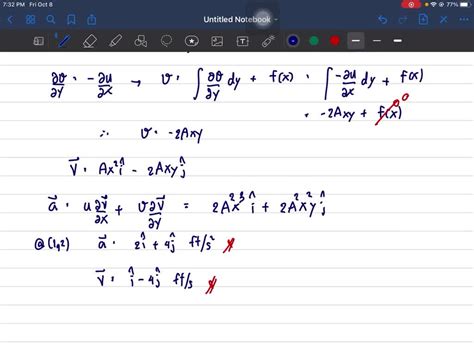 7:32 PM Fri Oct 8 77%
Untitled Notebook
∂v/∂y = -∂u/∂x → v = ∫ ∂v/∂y dy + f(x) = ∫ -∂u/∂x dy + f(x)
= -2Axy + f(x) 0
∴ v = -2Axy
V⃗ = Ax² î - 2Axy ĵ
a⃗ = u ∂V⃗/∂x + v ∂V⃗/∂y = 2A²x³ î + 2A²x²y ĵ
@(1,2) a⃗ = 2î + 4ĵ ft/s²
V⃗ = î - 4ĵ ft/s